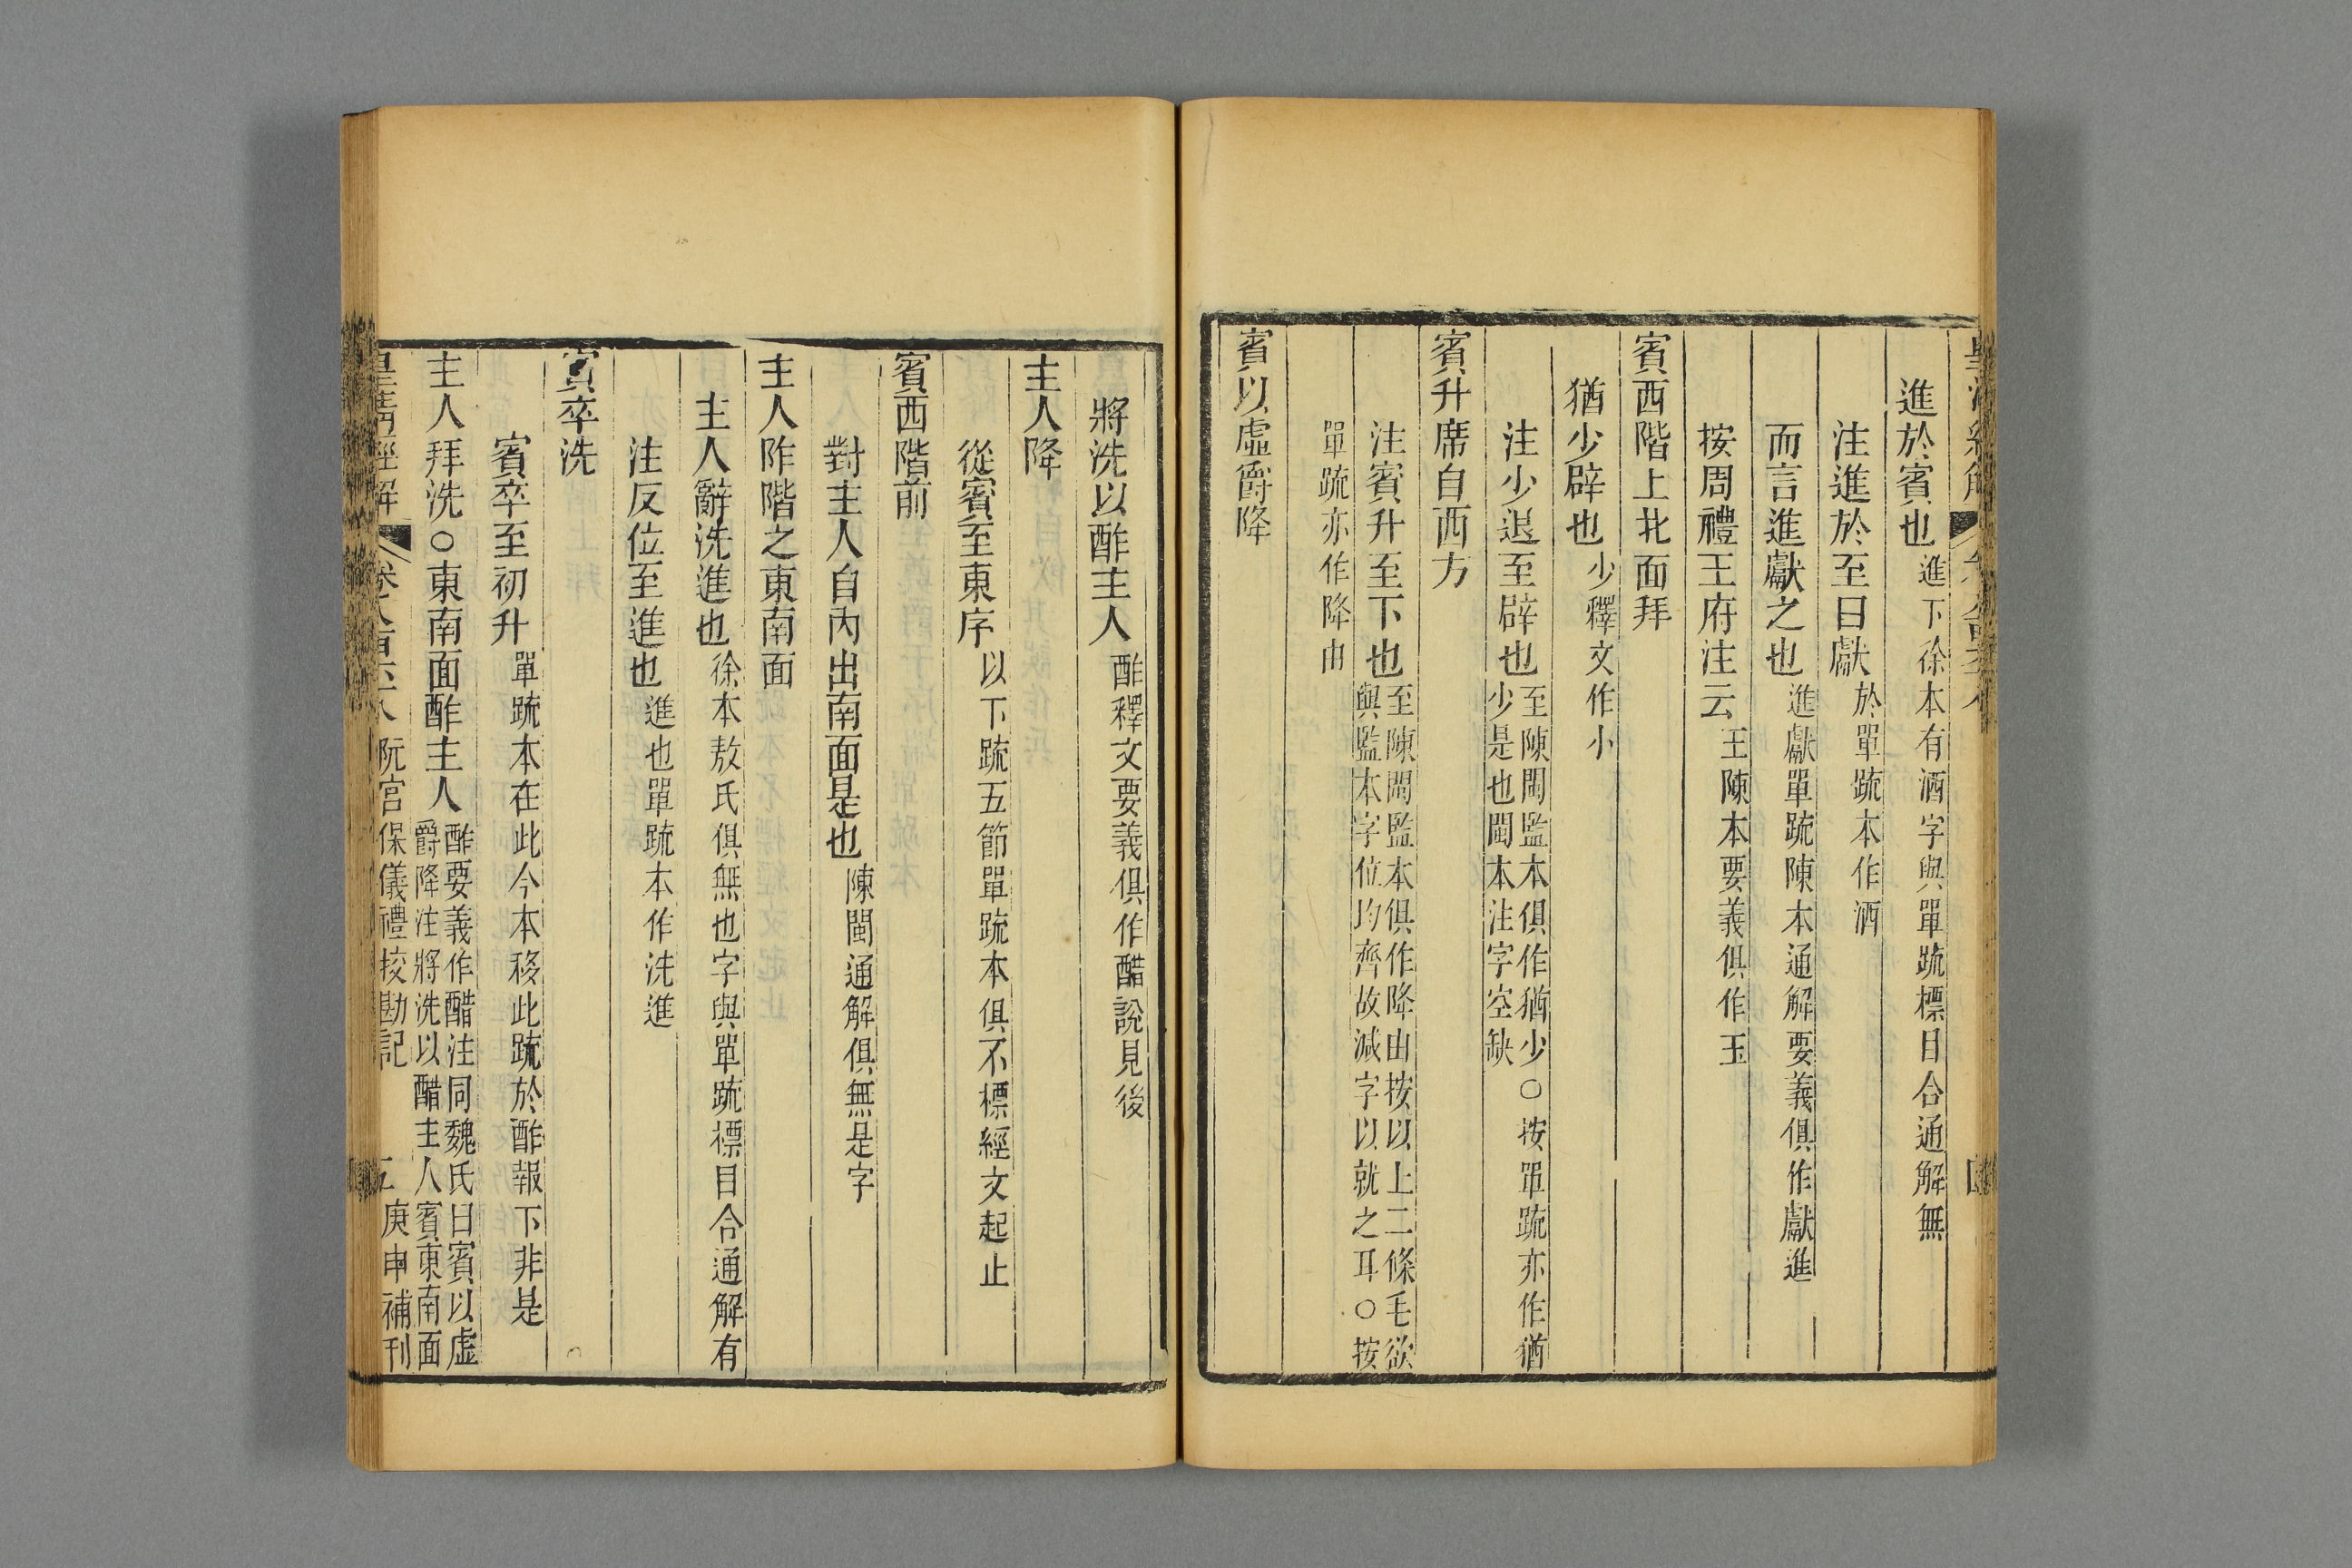 進於賓也進下徐本有酒字與單疏標目合通解無
注進於至曰獻於單疏本作酒
而言進獻之也進獻單疏陳本通解要義俱作獻進
按周禮王府注云王陳本要義俱作玉
賓西階上北面拜
猶少辟也少釋文作小
注少退至辟也至陳閩監本俱作猶少○按單疏亦作猶
少是也閩本注字空缺
賓升席自西方
注賓升至下也至陳閩監本俱作降由按以上二條毛欲
與監本字位均齊故減字以就之耳○按
單疏亦作降由
賓以虛爵降
將洗以酢主人酢釋文要義俱作醋說見後
主人降
從賓至東序以下疏五節單疏本俱不標經文起止
賓西階前
對主人自內出南面是也陳閩通解俱無是字
主人阼階之東南面
主人辭洗進也徐本敖氏俱無也字與單疏標目合通解有
注反位至進也進也單疏本作洗進
賓卒洗
賓卒至初升單疏本在此今本移此疏於酢報下非是
主人拜洗○東南面酢主人酢要義作醋注同魏氏曰賓以虛
爵降注將洗以醋主人賓東南面
皇清經解 卷八百六十八 阮宮保儀禮挍勘記 五 庚申補刊